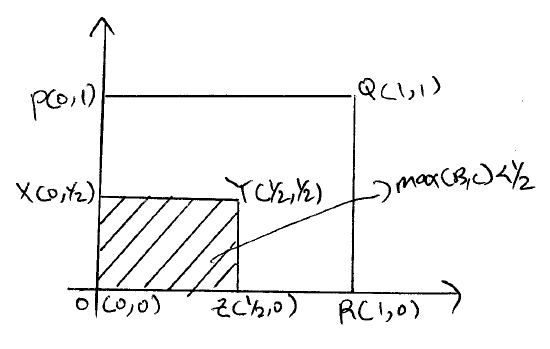 P(0,1)
Q(1,1)
X(0,1/2)
Y(1/2,1/2)
max(B,C)<1/2
O
(0,0)
Z(1/2,0)
R(1,0)